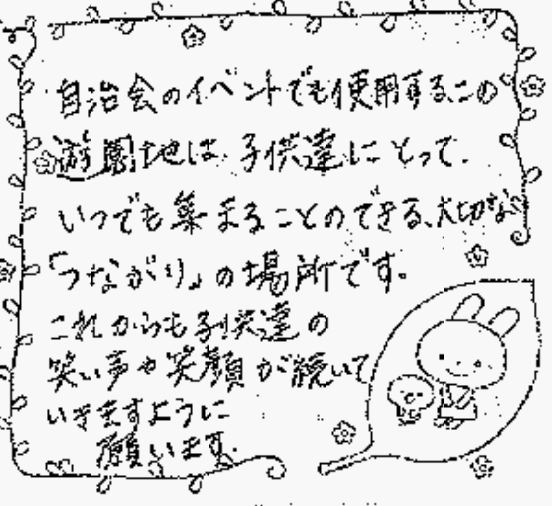 自治会のイベントでも使用するこの
遊園地は、子供達にとって、
いつでも集まることのできる、大切な
「つながり」の場所です。
これからも子供達の
笑い声や笑顔が続いて
いきますように
願います。